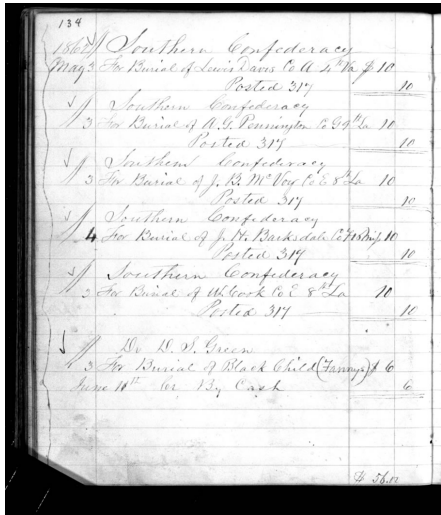 134
186 Southern Confederacy
May 3 For Burial of Lewis Davis Co A 4th Va $ 10
Posted 317 10
Southern Confederacy
3 For Burial of A. G. Pennington Co G 9th La 10
Posted 317 10
Southern Confederacy
3 For Burial of J. B. McVoy Co E 8th La 10
Posted 317 10
Southern Confederacy
4 For Burial of J. H. Barksdale Co 18 Miss 10
Posted 317 10
Southern Confederacy
3 For Burial of W. Cook Co E 8th La 10
Posted 317 10
Dr D. S. Green
3 For Burial of Black Child (Fannys) $ 6
June 10th Cr By Cash 6
$ 56.00